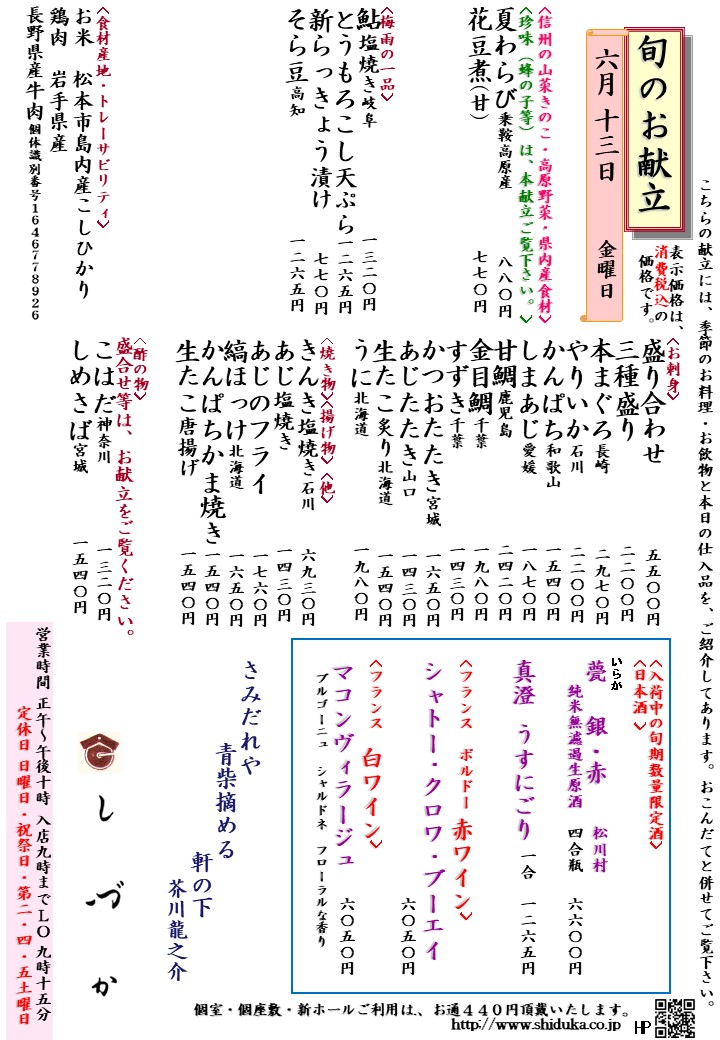 こちらの献立には、季節のお料理・お飲物と本日の仕入品を、ご紹介してあります。おこんだてと併せてご覧下さい。
旬のお献立
表示価格は、
消費税込の
価格です。
六月 十三日 金曜日
〈信州の山菜きのこ・高原野菜・県内産食材〉
〈珍味（蜂の子等）は、本献立ご覧下さい。〉
夏わらび 乗鞍高原産 八八〇円
花豆煮(甘) 七七〇円
〈梅雨の一品〉
鮎塩焼き 岐阜 一三二〇円
とうもろこし天ぷら 一二六五円
新らっきょう漬け 七七〇円
そら豆 高知 一二六五円
〈食材産地・トレーサビリティ〉
お米 松本市島内産こしひかり
鶏肉 岩手県産
長野県産牛肉 個体識別番号1646778926
〈お刺身〉
盛り合わせ 五五〇〇円
三種盛り 二二〇〇円
本まぐろ 長崎 二九七〇円
やりいか 石川 二二〇〇円
かんぱち 和歌山 一五四〇円
しまあじ 愛媛 一八七〇円
甘鯛 鹿児島 二四二〇円
金目鯛 千葉 一九八〇円
すずき 千葉 一四三〇円
かつおたたき 宮城 一六五〇円
あじたたき 山口 一四三〇円
生たこ炙り 北海道 一五四〇円
うに 北海道 一九八〇円
〈焼き物〉〈揚げ物〉〈他〉
きんき塩焼き 石川 六九三〇円
あじ塩焼き 一四三〇円
あじのフライ 一七六〇円
縞ほっけ 北海道 一六五〇円
かんぱちかま焼き 一五四〇円
生たこ唐揚げ 一五四〇円
盛合せ等は、お献立をご覧ください。
〈酢の物〉
こはだ 神奈川 一三二〇円
しめさば 宮城 一五四〇円
〈入荷中の旬期数量限定酒〉
〈日本酒〉
いらか
甍 銀・赤 松川村
純米無濾過生原酒 四合瓶 六六〇〇円
真澄 うすにごり 一合 一二六五円
〈フランス ボルドー 赤ワイン〉
シャトー・クロワ・ブーエイ 六〇五〇円
〈フランス 白ワイン〉
マコンヴィラージュ 六〇五〇円
ブルゴーニュ シャルドネ フローラルな香り
さみだれや
青柴摘める
軒の下
芥川龍之介
しづか
営業時間 正午～午後十時 入店九時までＬＯ九時十五分
定休日 日曜日・祝祭日・第二・四・五土曜日
個室・個座敷・新ホールご利用は、お通４４０円頂戴いたします。
http://www.shiduka.co.jp HP